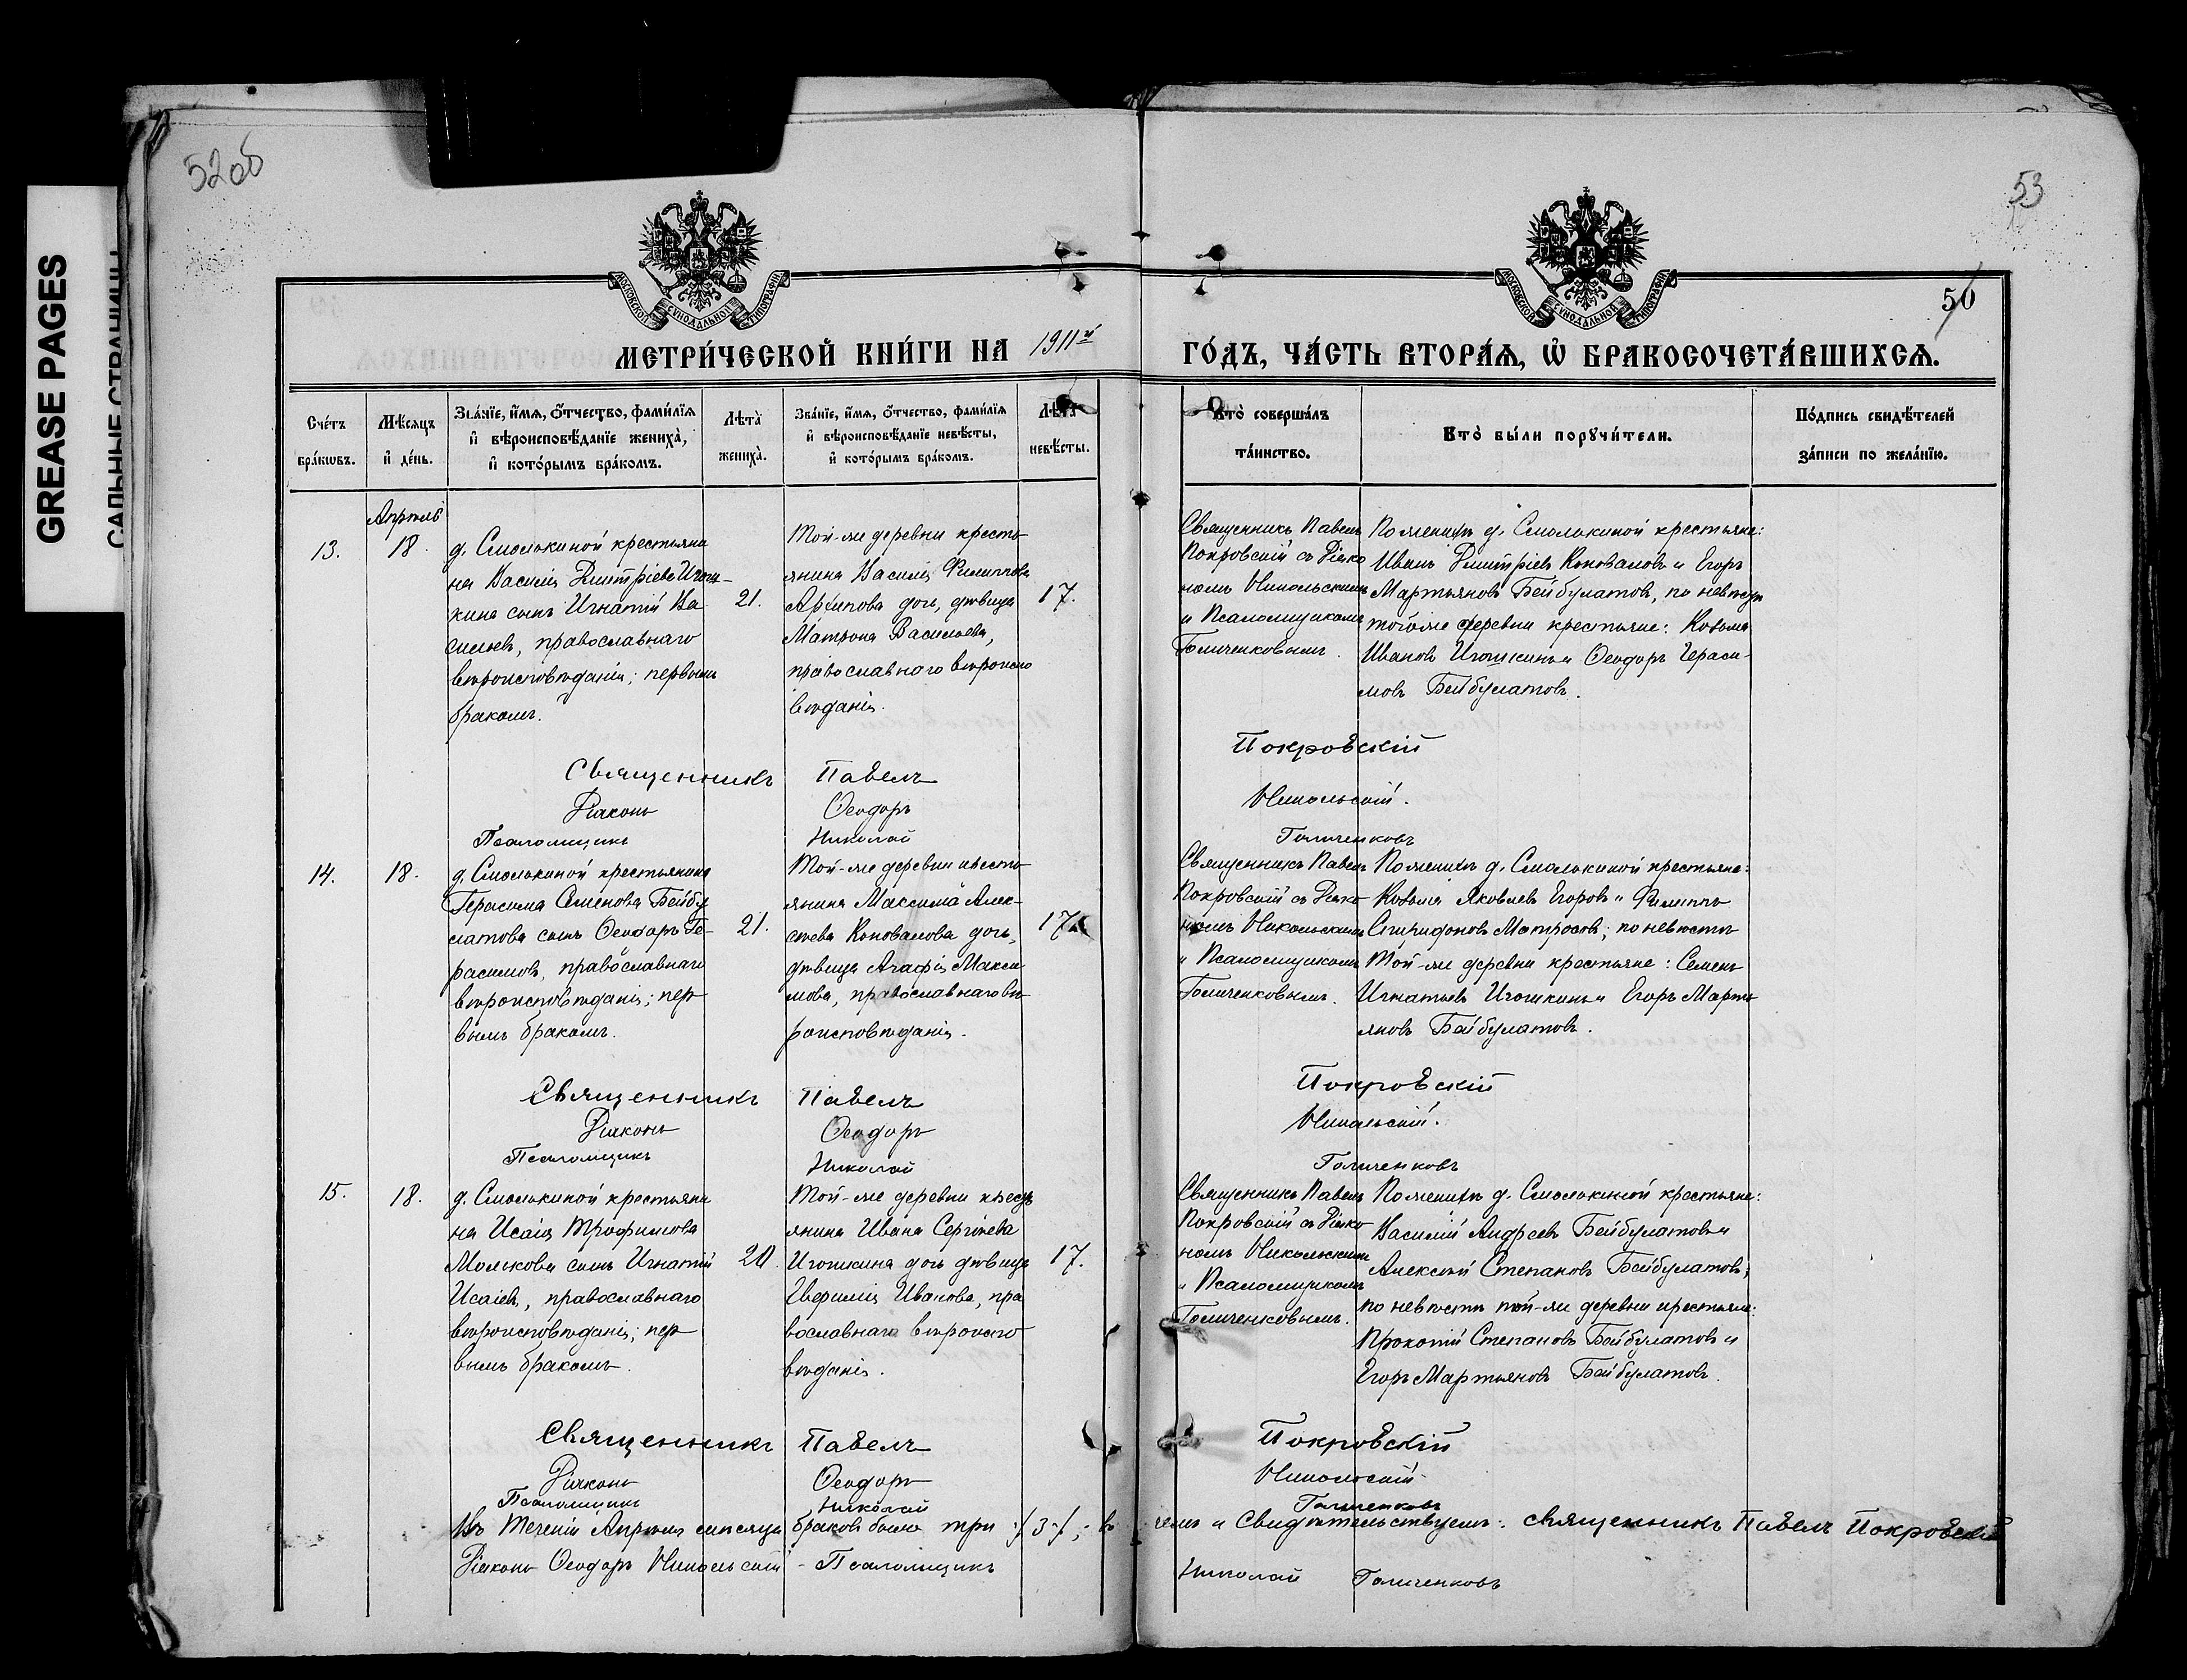 GREASE PAGES
САЛЬНЫЕ СТРАНИЦЫ
52об
53
50
МОСКОВСКОЙ СѴНОДАЛЬНОЙ ТИПОГРАФІИ
МОСКОВСКОЙ СѴНОДАЛЬНОЙ ТИПОГРАФІИ
МЕТРИ́ЧЕСКОЙ КНИ́ГИ НА 1911й ГО́ДЪ, ЧА́СТЬ ВТОРА́Я, Ѿ БРАКОСОЧЕТА́ВШИХСЯ.
Сче́тъ
бра́кѡвъ.
Мѣ́сяцъ
и҆ де́нь.
Зва́нїе, и҆́мя, ѻ҆́тчество, фами́лїя
и҆ вѣроисповѣ́данїе жениха̀,
и҆ кото́рымъ бра́комъ.
Лѣта̀
жениха̀.
Зва́нїе, и҆́мя, ѻ҆́тчество, фами́лїя
и҆ вѣроисповѣ́данїе невѣ́сты,
и҆ кото́рымъ бра́комъ.
Лѣта̀
невѣ́сты.
Кто̀ соверша́лъ
та́инство.
Кто̀ бы́ли порꙋчи́тели.
По́дпись свидѣ́телей
за́писи по жела́нїю.
Апрѣль
13.
18.
д. Смолькиной крестьяни
на Василія Дмитріева Игош-
кина сынъ Игнатій Ва
сильевъ, православнаго
вѣроисповѣданія; первымъ
бракомъ.
21.
Той-же деревни кресть
янина Василія Филиппова
Архипова дочь, дѣвица
Матрона Васильева,
православнаго вѣроиспо
вѣданія.
17.
Священникъ Павелъ
Покровскій съ Діако
номъ Никольскимъ
и Псаломщикомъ
Голиченковымъ.
По женихѣ д. Смолькиной крестьяне:
Иванъ Дмитріевъ Коноваловъ и Егоръ
Мартьяновъ Бейбулатовъ, по невѣстѣ
тойже деревни крестьяне: Козьма
Ивановъ Игошкинъ и Ѳеодоръ Гераси-
мовъ Бейбулатовъ.
Священникъ Павелъ Покровскій
Діаконъ Ѳеодоръ Никольскій.
Псаломщикъ Николай Голиченковъ
14.
18.
д. Смолькиной крестьянина
Герасима Семенова Бейбу
латова сынъ Ѳеодоръ Ге-
расимовъ, православнаго
вѣроисповѣданія; пер
вымъ бракомъ.
21.
Той-же деревни кресть
янина Максима Алек-
сѣева Коновалова дочь,
дѣвица Агафія Макси
мова, православнаго вѣ
роисповѣданія.
17.
Священникъ Павелъ
Покровскій съ Діако
номъ Никольскимъ
и Псаломщикомъ
Голиченковымъ.
По женихѣ д. Смолькиной крестьяне:
Козьма Яковлевъ Егоровъ и Филиппъ
Спиридоновъ Матросовъ; по невѣстѣ
той-же деревни крестьяне: Семенъ
Игнатьевъ Игошкинъ и Егоръ Марть
яновъ Бейбулатовъ.
Священникъ Павелъ Покровскій
Діаконъ Ѳеодоръ Никольскій.
Псаломщикъ Николай Голиченковъ
15.
18.
д. Смолькиной крестьяни
на Исаія Трофимова
Молькова сынъ Игнатій
Исаіевъ, православнаго
вѣроисповѣданія; пер
вымъ бракомъ.
20.
Той-же деревни кресть
янина Ивана Сергѣева
Игошкина дочь дѣвица
Ивановa, пра
вославнаго вѣроиспо
вѣданія.
17.
Священникъ Павелъ
Покровскій съ Діако
номъ Никольскимъ
и Псаломщикомъ
Голиченковымъ.
По женихѣ д. Смолькиной крестьяне:
Василій Андреевъ Бейбулатовъ и
Алексѣй Степановъ Бейбулатовъ;
по невѣстѣ той-же деревни крестьяне:
Прокопій Степановъ Бейбулатовъ и
Егоръ Мартьяновъ Бейбулатовъ.
Священникъ Павелъ Покровскій
Діаконъ Ѳеодоръ Никольскій
Псаломщикъ Николай Голиченковъ
Въ теченіи Апрѣля мѣсяца браковъ было три /3/, - въ чемъ и свидѣтельствуемъ: священникъ Павелъ Покровскій
Діаконъ Ѳеодоръ Никольскій - Псаломщикъ Николай Голиченковъ